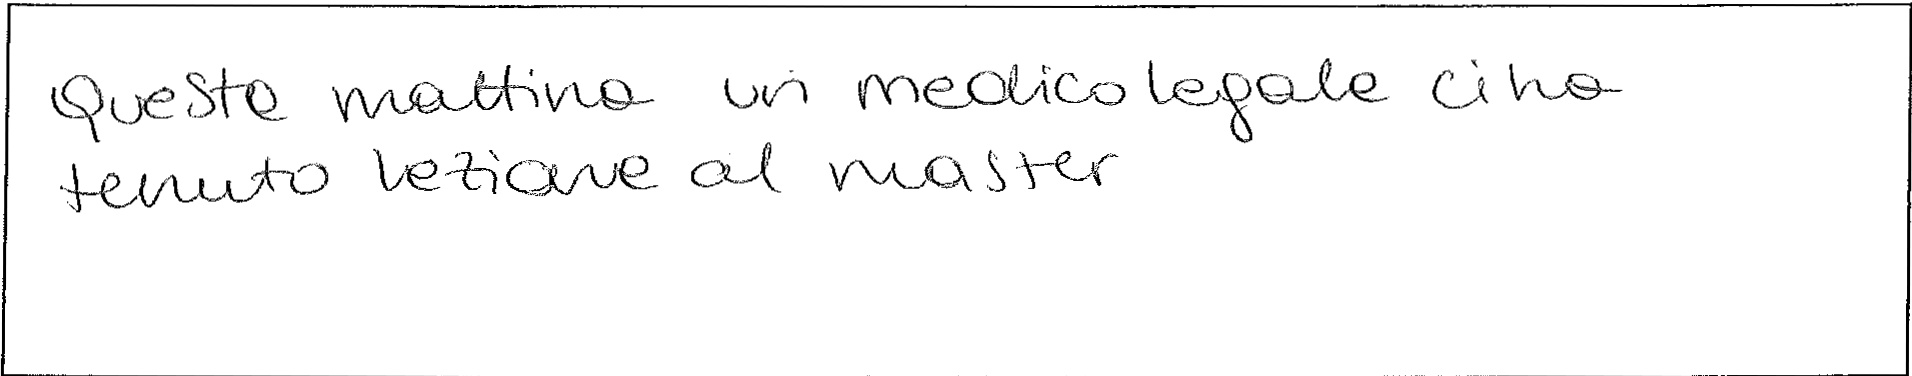 Questa mattina un medico legale ci ha
tenuto lezione al master